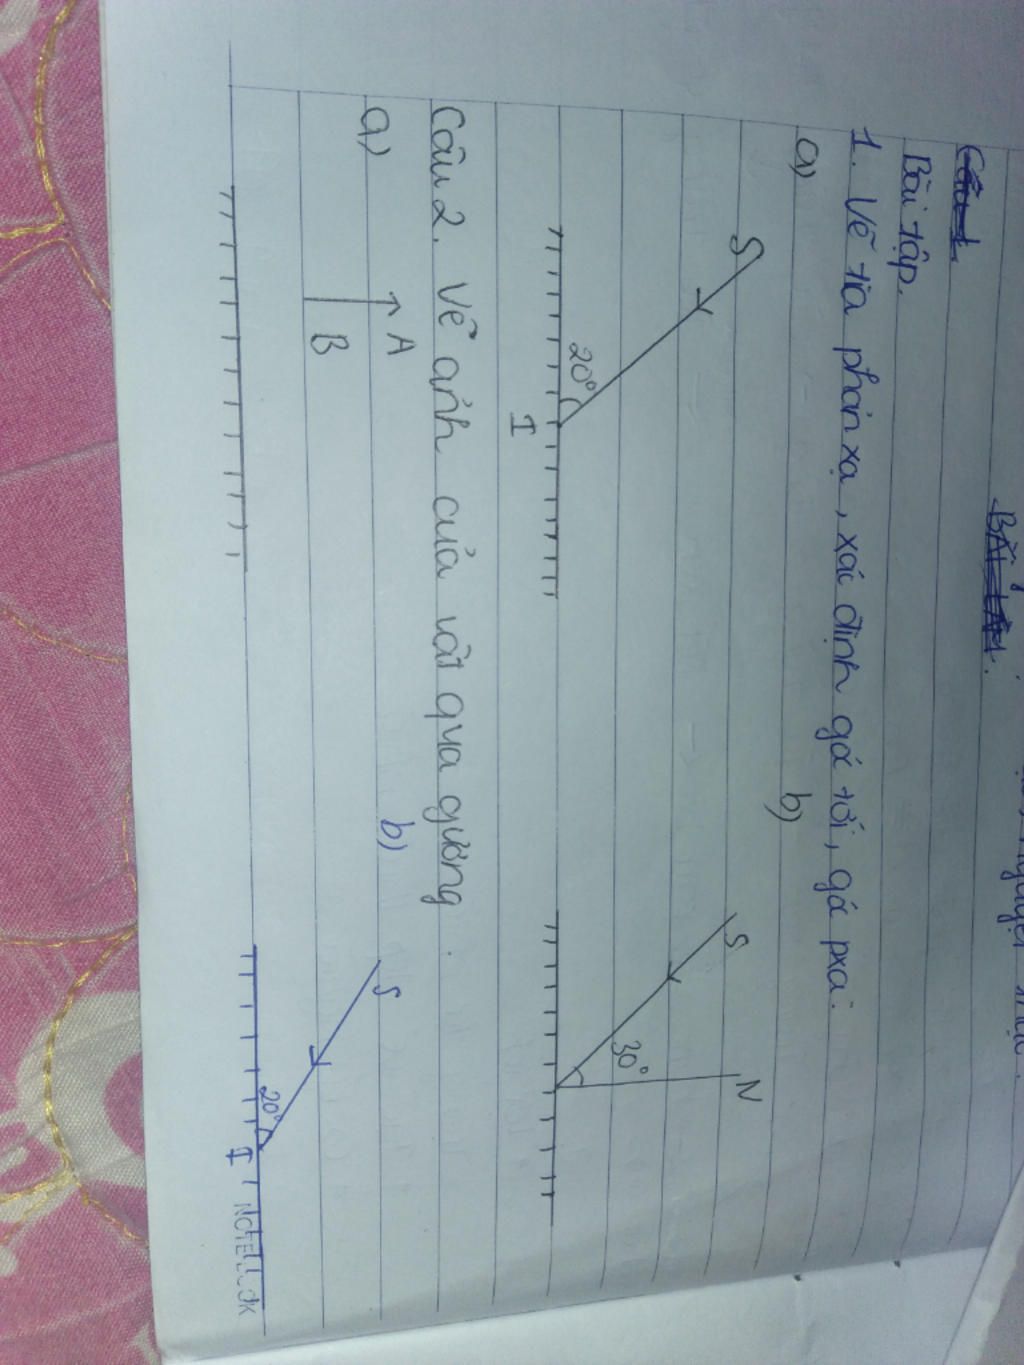 Câu 1.
BÀI TẬP.
Bài tập.
1. Vẽ tia phản xạ, xác định gó tới, gó pxạ.
a)
b)
S
20°
I
S
30°
N
Câu 2. Vẽ ảnh của vật qua gương.
a)
b)
A
B
S
20°
I
NOTEBOOK